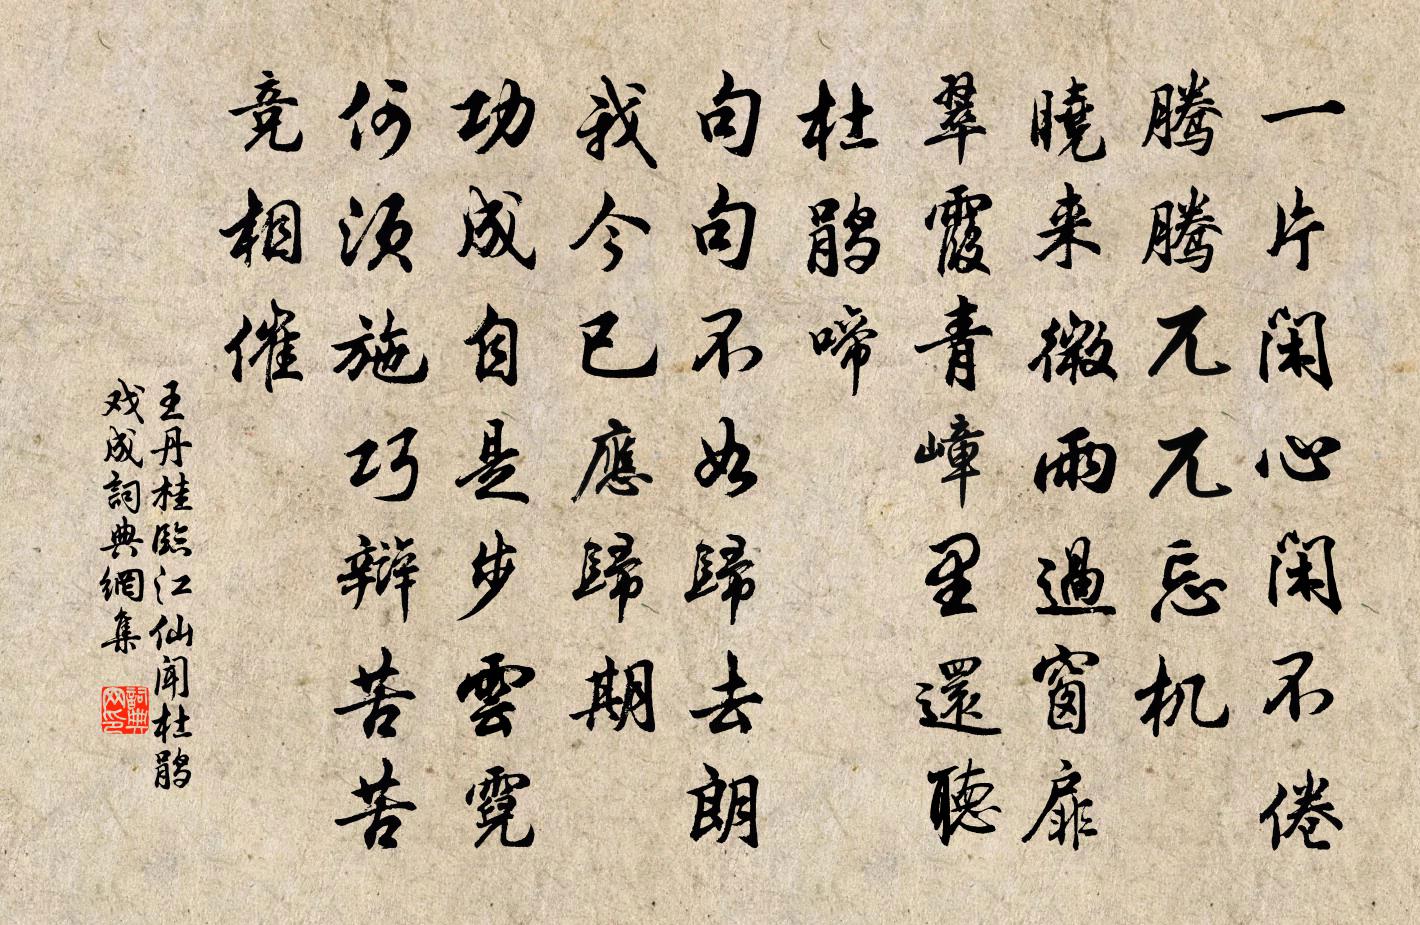 一片闲心闲不倦
腾腾兀兀忘机
曉来微雨過窗扉
翠霞青嶂里還聽
杜鹃啼
句句不如歸去朗
我今已應歸期
功成自是步雲霓
何须施巧辩苦苦
竞相催
王丹桂臨江仙闻杜鹃
戏成詞典網集
詞典
网印